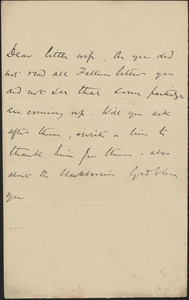 Dear little wife. As you did
not read all Fathers letter you
did not see that some partridges
are coming up. Will you ask
after them, & write to him to
thank him for them. also
about the blackberries God bless
you